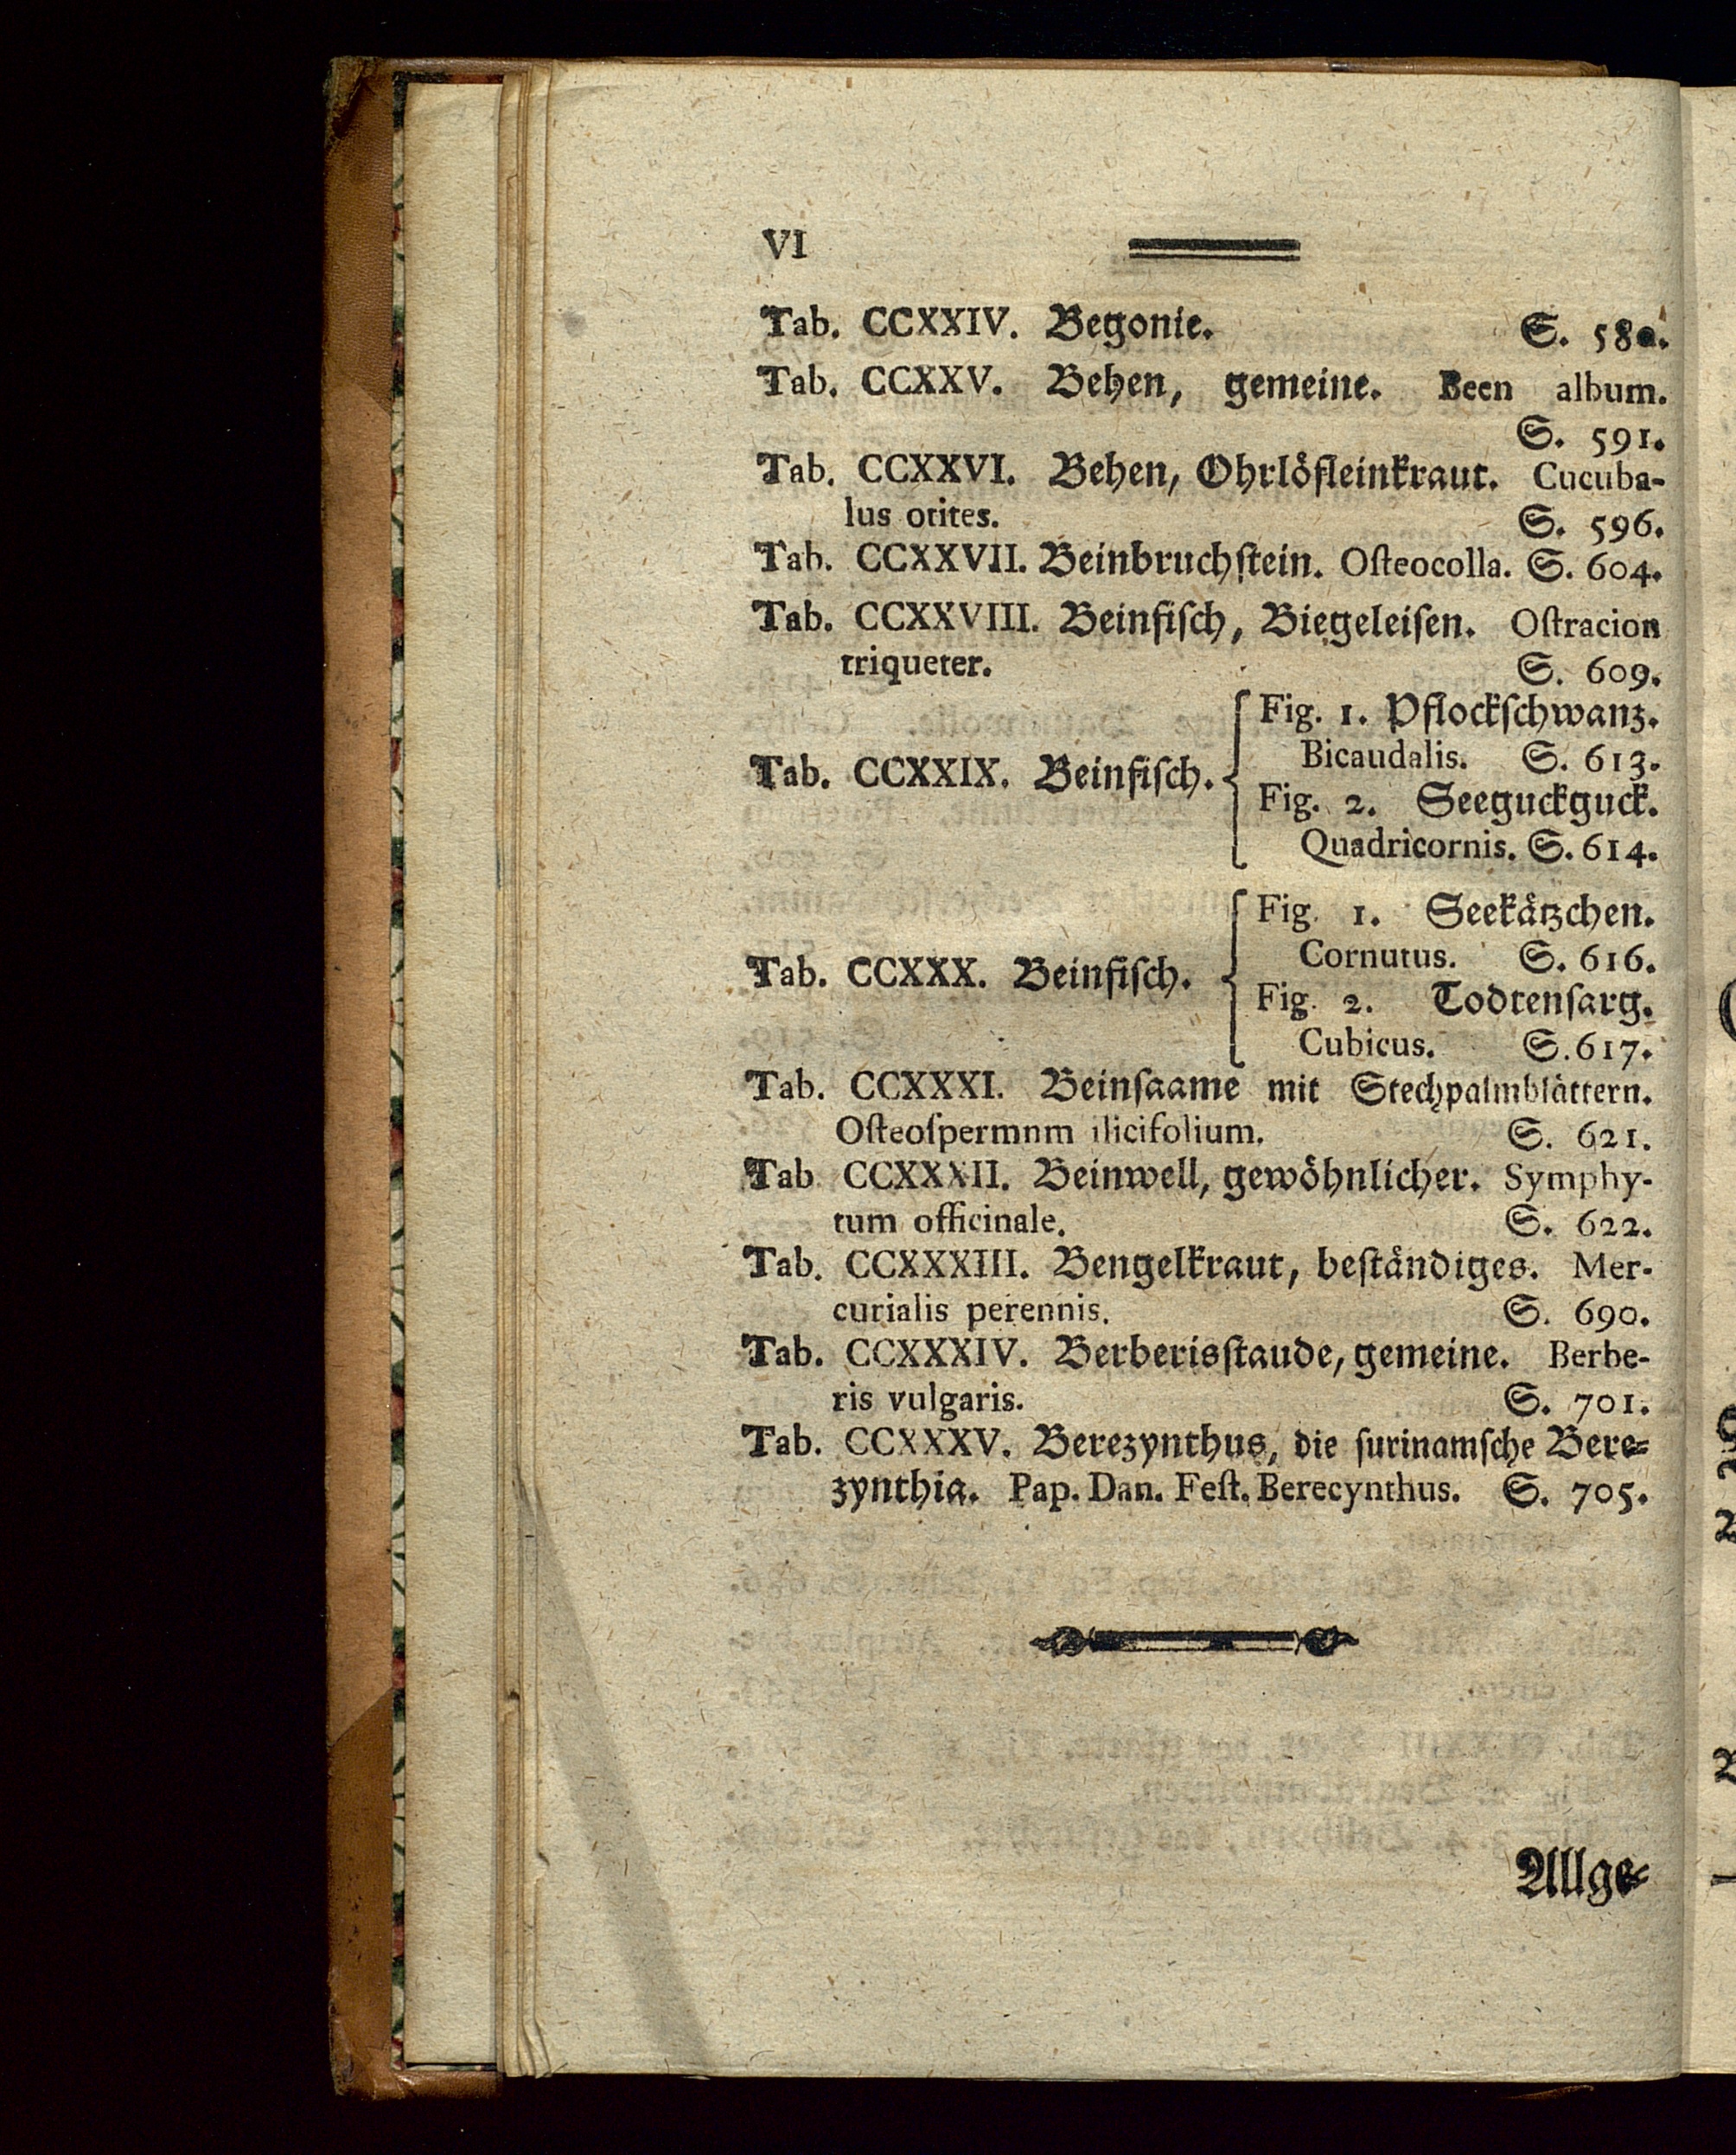 VI
Tab. CCXXIV. Begonie. S. 580.
Tab. CCXXV. Behen, gemeine. Been album.
S. 591.
Tab. CCXXVI. Behen, Ohrlöfleinkraut. Cucuba-
lus otites. S. 596.
Tab. CCXXVII. Beinbruchſtein. Oſteocolla. S. 604.
Tab. CCXXVIII. Beinfiſch, Biegeleiſen. Oſtracion
triqueter. S. 609.
Fig. 1. Pflockſchwanz.
Bicaudalis. S. 613.
Tab. CCXXIX. Beinfiſch.
Fig. 2. Seeguckguck.
Quadricornis. S. 614.
Fig. 1. Seekätzchen.
Cornutus. S. 616.
Tab. CCXXX. Beinfiſch.
Fig. 2. Todtenſarg.
Cubicus. S. 617.
Tab. CCXXXI. Beinſaame mit Stechpalmblättern.
Oſteoſpermnm ilicifolium. S. 621.
Tab CCXXXII. Beinwell, gewöhnlicher. Symphy-
tum officinale. S. 622.
Tab. CCXXXIII. Bengelkraut, beſtändiges. Mer-
curialis perennis. S. 690.
Tab. CCXXXIV. Berberisſtaude, gemeine. Berbe-
ris vulgaris. S. 701.
Tab. CCXXXV. Berezynthus, die ſurinamſche Bere-
zynthia. Pap. Dan. Feſt. Berecynthus. S. 705.
Allge-